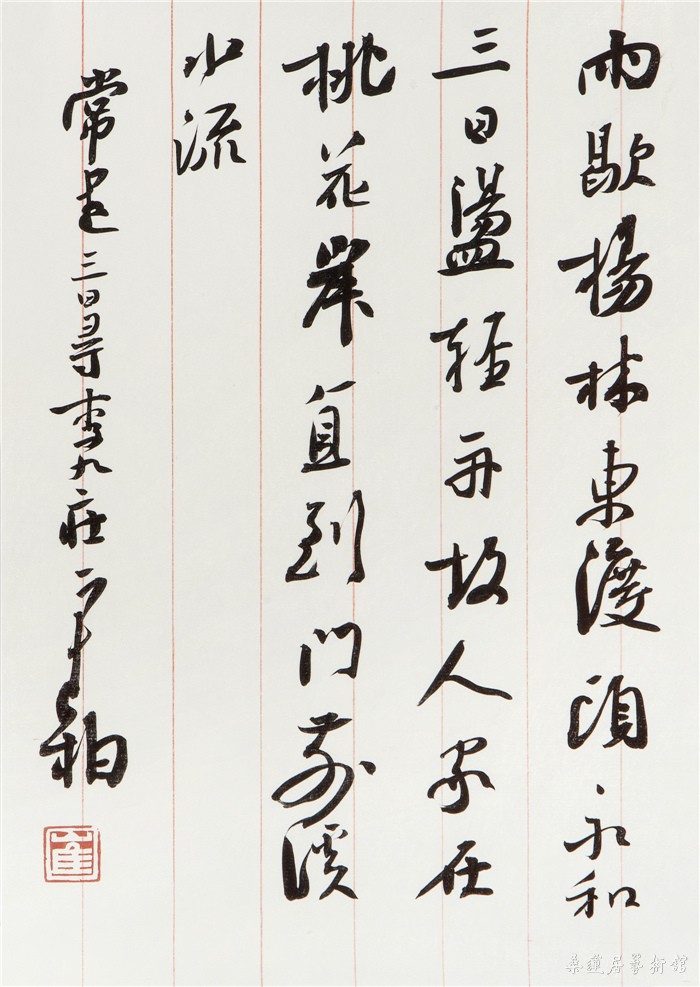 雨歇楊林東渡頭永和
三日盪輕舟故人家在
桃花岸直到門前溪
水流
常建三日尋李九庄寒柏
崔
桑蓮居藝術館